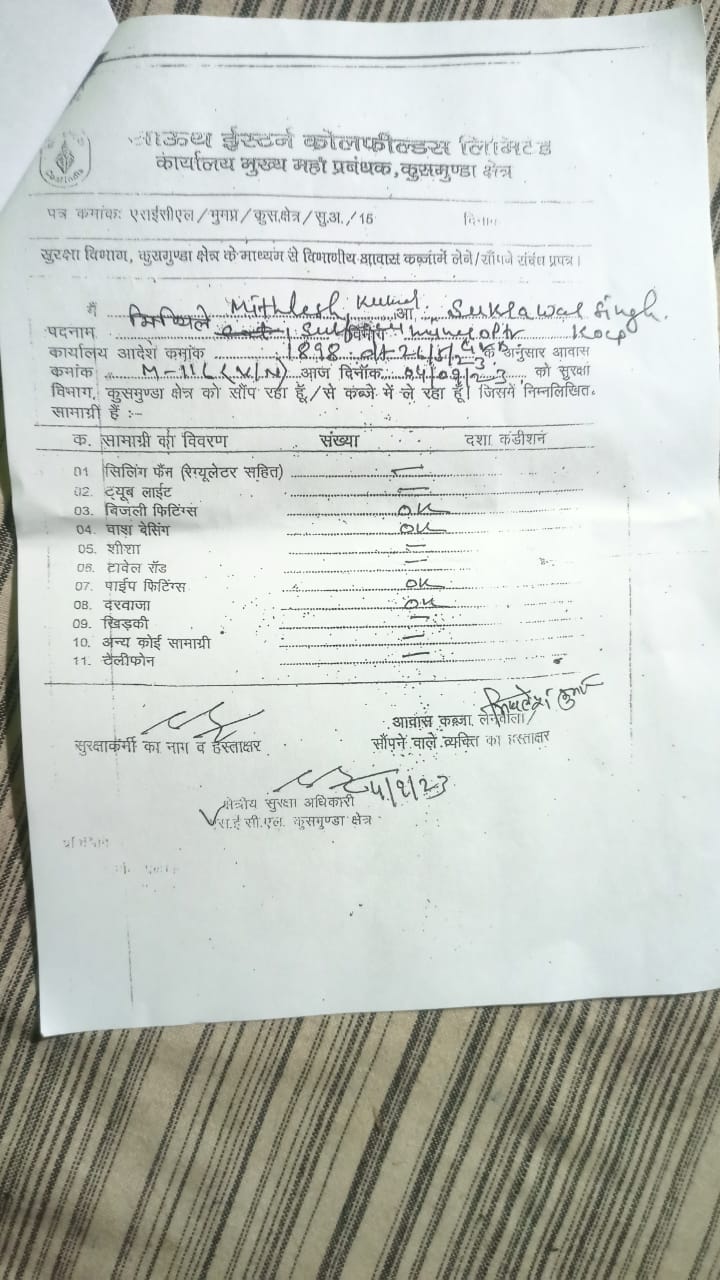 साउथ ईस्टर्न कोलफील्डस लिमिटेड
कार्यालय मुख्य महा प्रबंधक,कुसमुण्डा क्षेत्र
पत्र कमांक: एसईसीएल/मुमप्र/कुस.क्षेत्र/सु.अ./16 दिनांक
सुरक्षा विभाग, कुसमुण्डा क्षेत्र के माध्यम से विभागीय आवास कब्जामें लेने/सौंपने संबंध प्रपत्र।
मैं मिथिलेश Mithlesh Kumar आ. Suklawal Singh.
पदनाम विभाग
कार्यालय आदेश कमांक 1898 dt 26/8/23 के अनुसार आवास
कमांक M-116 आज दिनॉक 04/09/23 को सुरक्षा
विभाग, कुसमुण्डा क्षेत्र को सौंप रहा हूँ/से कब्जे में ले रहा हूँ। जिसमें निम्नलिखित
सामाग्री हैं :-
क. सामाग्री का विवरण संख्या दशा कंडीशन
01 सिलिंग फैंन (रेग्यूलेटर सहित) —
02. ट्यूब लाईट —
03. बिजली फिटिंग्स OK
04. वाश बेसिंग OK
05. शीशा —
06. टावेल रॉड —
07. पाईप फिटिंग्स OK
08. दरवाजा OK
09. खिड़की —
10. अन्य कोई सामाग्री —
11. टेलीफोन —
मिथलेश कुमार
आवास कब्जा लेनेवाला/
सुरक्षाकर्मी का नाम व हस्ताक्षर सौंपने वाले व्यक्ति का हस्ताक्षर
4/9/23
क्षेत्रीय सुरक्षा अधिकारी
एस.ई.सी.एल. कुसमुण्डा क्षेत्र